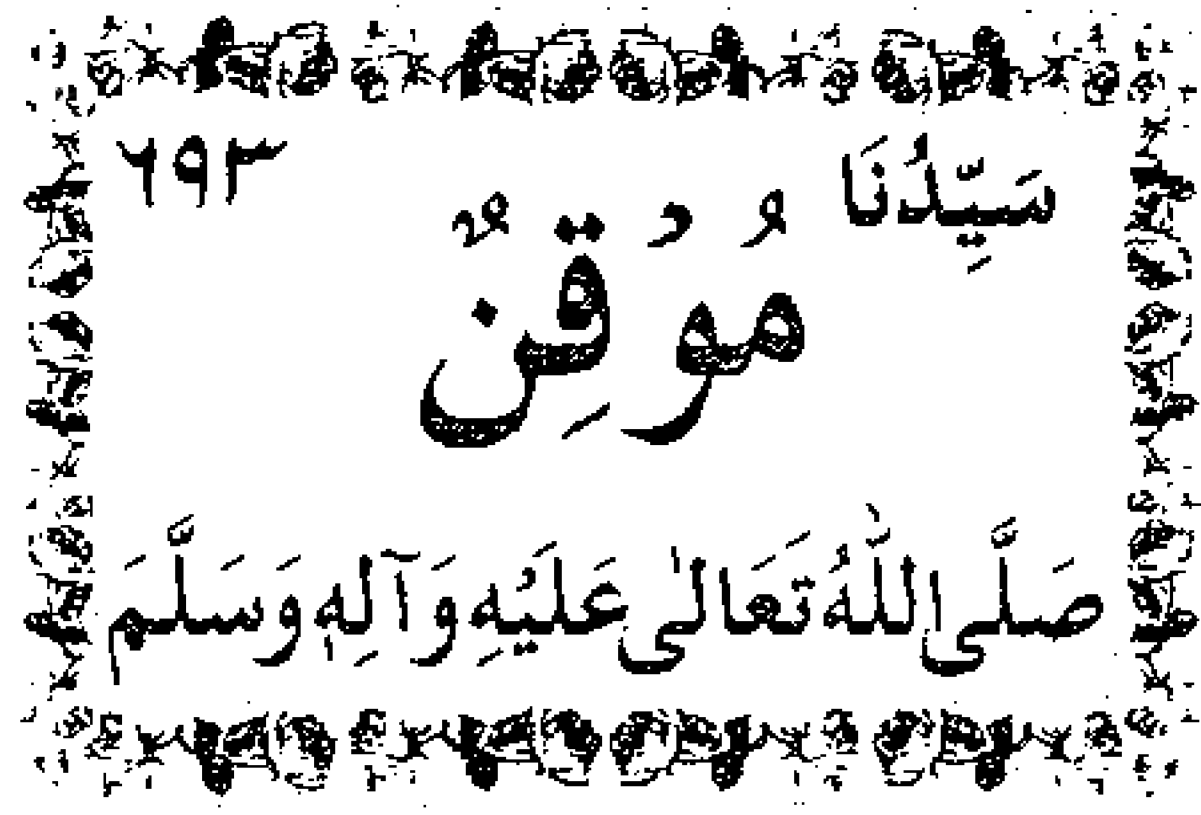 سَيِّدُنَا ٦٩٣
مُوْقِنٌ
صَلَّى اللّٰهُ تَعَالٰى عَلَيْهِ وَآلِهٖ وَسَلَّمَ